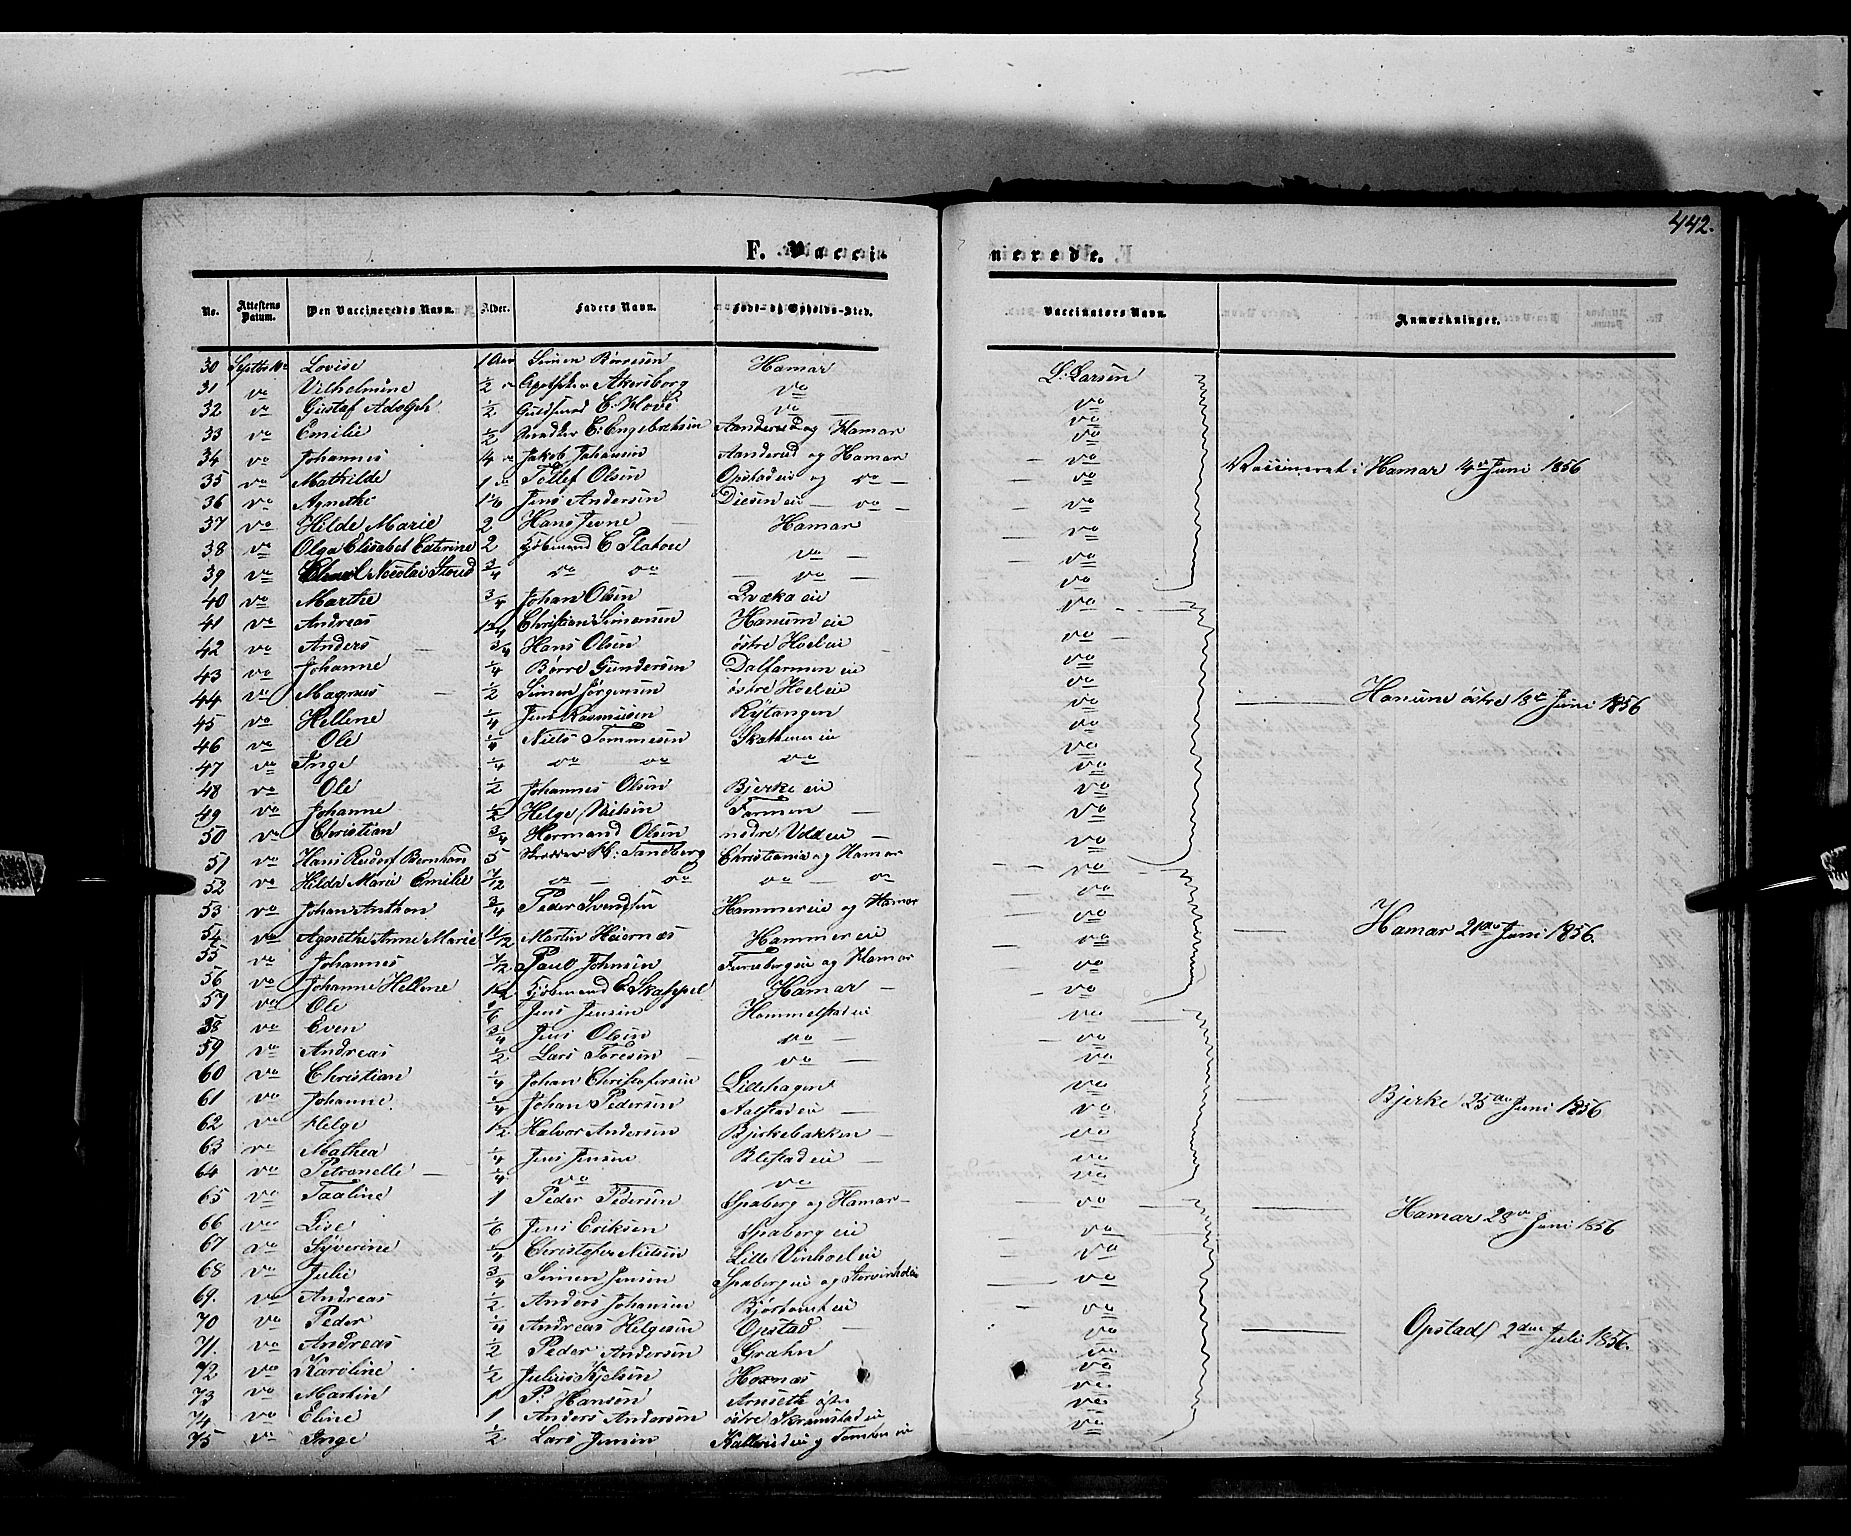 442.
F. Vaccinerede.
No. Attestens Datum. Den Vaccineredes Navn. Alder. Faders Navn. Føde- og Opholds-Sted. Vaccinators Navn. Anmærkninger.
30 Lovise 1 Aar Simen Børresen Hamar L. Larsen
31 do Vilhelmine 1/2 Akersborg do
32 do Gustaf Adolph 1/2 do do
33 do Emilie 1/2 E. Engebretsen Aanderud og Hamar do
34 do Johannes Jakob Johansen Aanderud og Hamar do
35 do Mathilde 1 Tollef Olsen Opstadeie og do do Vaccineret i Hamar 4de Juni 1856
36 do Agnethe Jens Andersen do do
37 do Hilde Marie 2 Hans Hamar do
38 do Olga Elisabet Catrine 2 Kjøbmand C. Platou do do
39 do Nicolai 3/4 do do do do
40 do Marthe 3/4 Johan Olsen eie do
41 do Andreas Christian Simensen Hanum eie do
42 do Anders 3/4 Hans Olsen østre Hoel eie do
43 do Johanne 1/4 Børre Gundersen Dalfarmen eie do
44 do Magnus 1/2 Simen Jørgensen østre Hoel eie do Hanum østre 18de Juni 1856
45 do Hellene 1/4 Jens Rasmusen Rytangen do
46 do Ole 1/4 Niels Tommesen eie do
47 do Inge 1/4 do do do do
48 do Ole 1/2 Johannes Olsen Bjerke eie do
49 do Johanne 1/2 Helge Nielsen Farmen do
50 do Christian 3/4 Hermand Olsen nedre eie do
51 do Hans Bernhard 5 Sandberg Christiania og Hamar do
52 do Hilda Marie Emilie 7/12 do do do do do
53 do Johan Anthon 3/4 Peder Svendsen Hammer eie og Hamar do
54 do Agnethe Anne Marie Martin Hammer eie do Hamar 21de Juni 1856.
55 do Johannes 7/12 Paul Johnsen Furubergeie og Hamar do
56 do Johanne Hellene Kjøbmand E. Skappel Hamar do
57 do Ole 1/6 Jens Jensen Hommelstad eie do
58 do Even 3/4 Jens Olsen do do
59 do Andreas 1/2 Lars Toresen do do
60 do Christian 1/4 Johan Christofersen Lillehagen do
61 do Johanne 1/4 Johan Pedersen Aalstad eie do Bjerke 25de Juni 1856
62 do Helge Halvor Andersen Bjerkebakken do
63 do Mathea 1/4 Jens Jensen Blestad eie do
64 do Petronelle 1/4 do do do
65 do Taaline 1 Peder Pedersen Spaberg og Hamar do
66 do Lise 1/6 Jens Eriksen Spaberg eie do Hamar 28de Juni 1856
67 do Syverine 1/4 Christofer Nielsen Lille Vinhoel eie do
68 do Julie 3/4 Simen Jensen Spaberg eie og do
69. do Andreas 1/2 Anders Johansen eie do
70 do Peder 1/4 Andreas Helgesen Opstad do Opstad 2den Juli 1856.
71. do Andreas 1/2 Peder Andersen Grahn do
72 do Karoline 1/2 Julius Kjelsen Hornæs do
73 do Martin 1 P. Hansen Arneseth do
74 do Eline 1 Anders Andersen østre Skramstad eie do
75 do Inge 1/2 Lars Jensen do